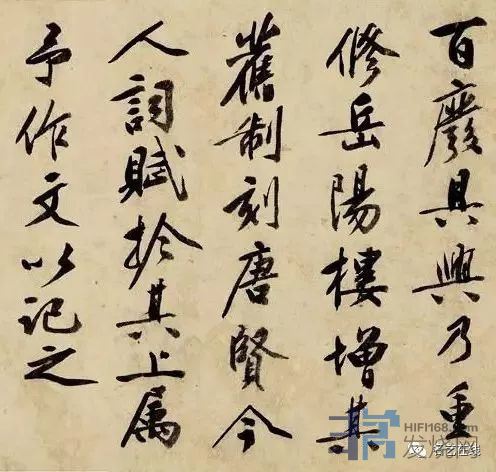 百廢具興乃重
修岳陽樓增其
舊制刻唐賢今
人詞賦於其上属
予作文以記之
HIFI168.com
发烧网
名艺在线